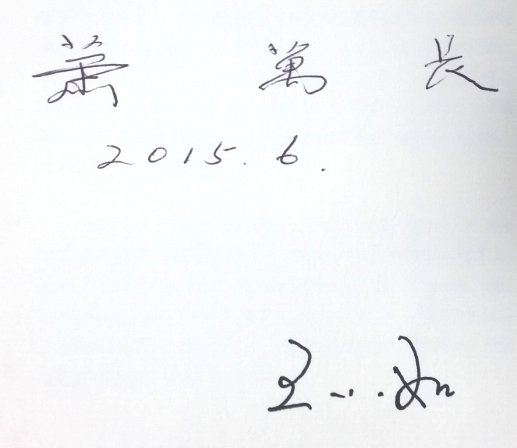 蕭 萬 長
2015.6.